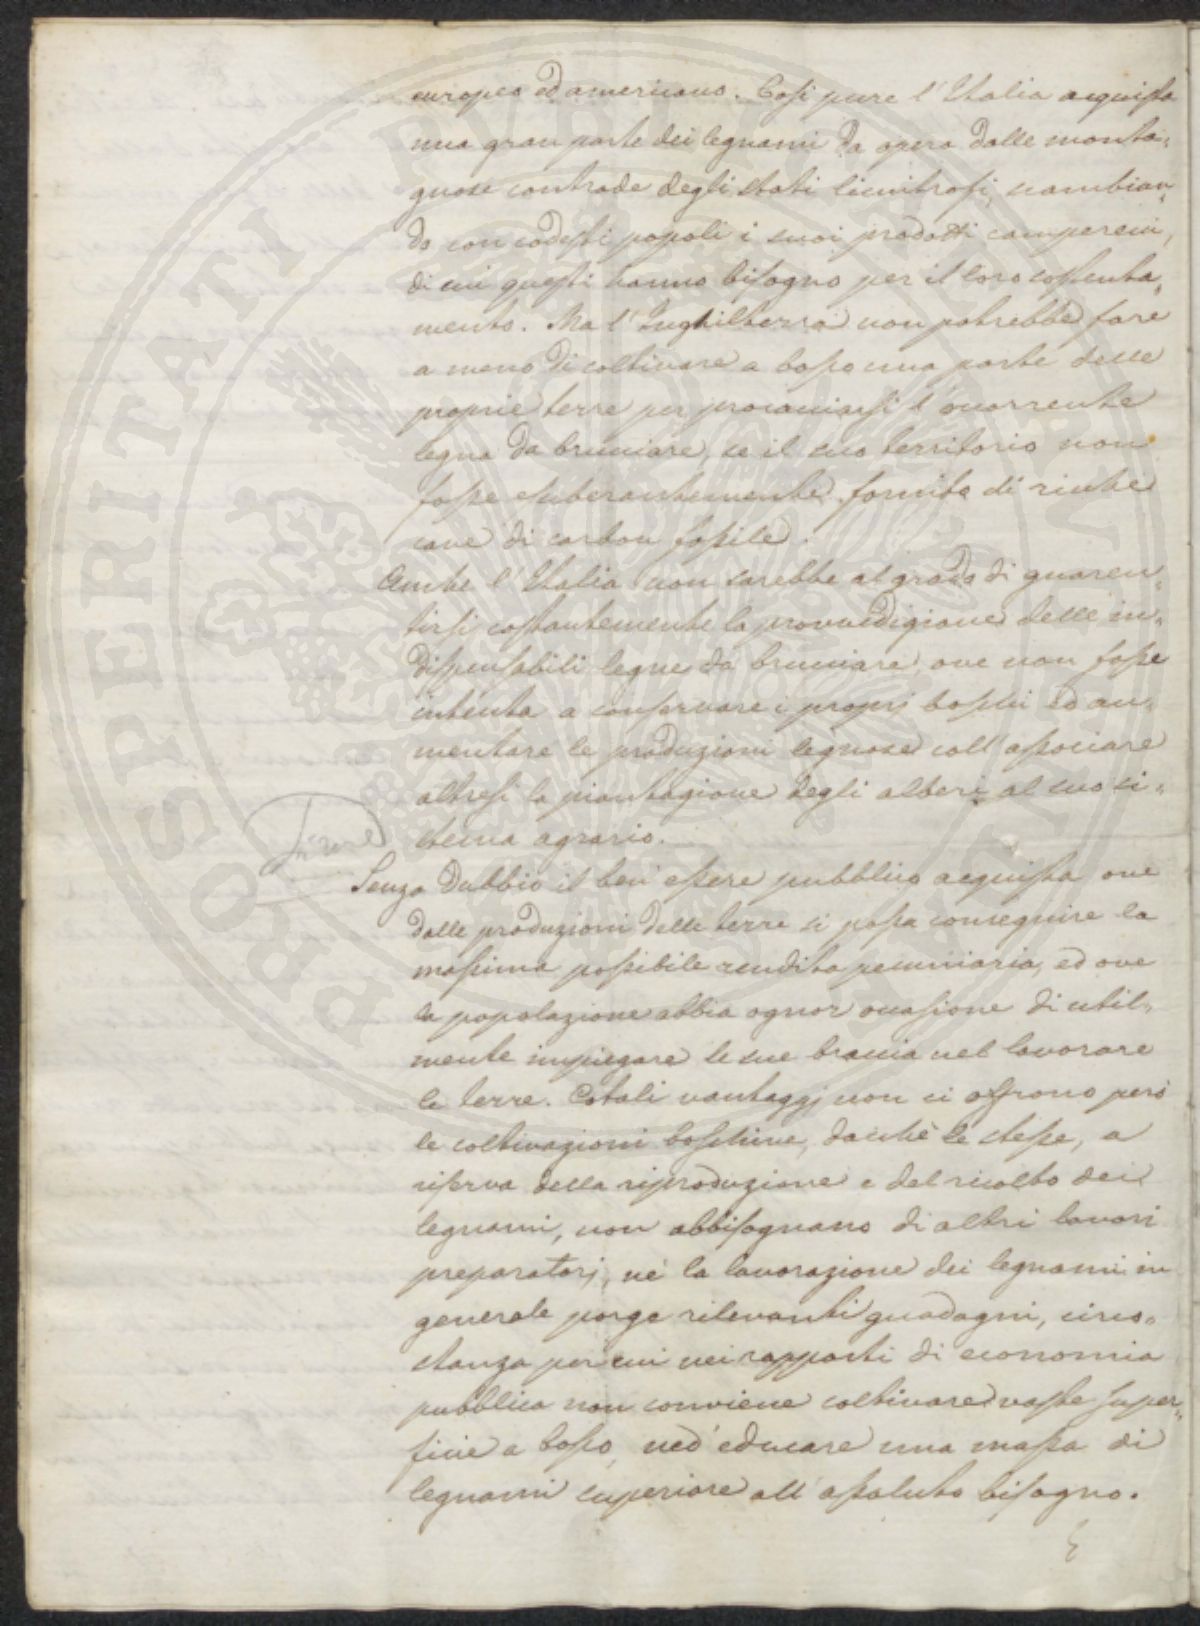 europeo ed americano. Così pure l'Italia acquista
una gran parte dei legnami da opera dalle monta„
gnose contrade degli stati limitrofi, scambian„
do con codesti popoli i suoi prodotti camperecci,
di cui questi hanno bisogno per il loro sostenta„
mento. Ma l'Inghilterra non potrebbe fare
a meno di coltivare a bosco una parte delle
proprie terre per procacciarsi l'occorrente
legna da bruciare, se il suo territorio non
fosse esuberantemente fornito di ricche
cave di carbon fossile.
Anche l'Italia non sarebbe al grado di guaren„
tirsi costantemente la provvedigione delle in„
dispensabili legne da bruciare, ove non fosse
intenta a conservare i proprj boschi ed au„
mentare le produzioni legnose coll'associare
altresì la piantagione degli alberi al suo si„
stema agrario.
Senza dubbio il ben essere pubblico acquista ove
dalle produzioni delle terre si possa conseguire la
massima possibile rendita pecuniaria, ed ove
la popolazione abbia ognor occasione di util„
mente impiegare le sue braccia nel lavorare
le terre. Cotali vantaggj non ci offrono però
le coltivazioni boschive, dacchè le stesse, a
riserva della riproduzione e del ricolto dei
legnami, non abbisognano di altri lavori
preparatorj, nè la lavorazione dei legnami in
generale porge rilevanti guadagni, circo„
stanza per cui nei rapporti di economia
pubblica non conviene coltivare vaste super„
ficie a bosco, ned educare una massa di
legnami superiore all'assoluto bisogno.
PROSPERITATI PVBLICAE